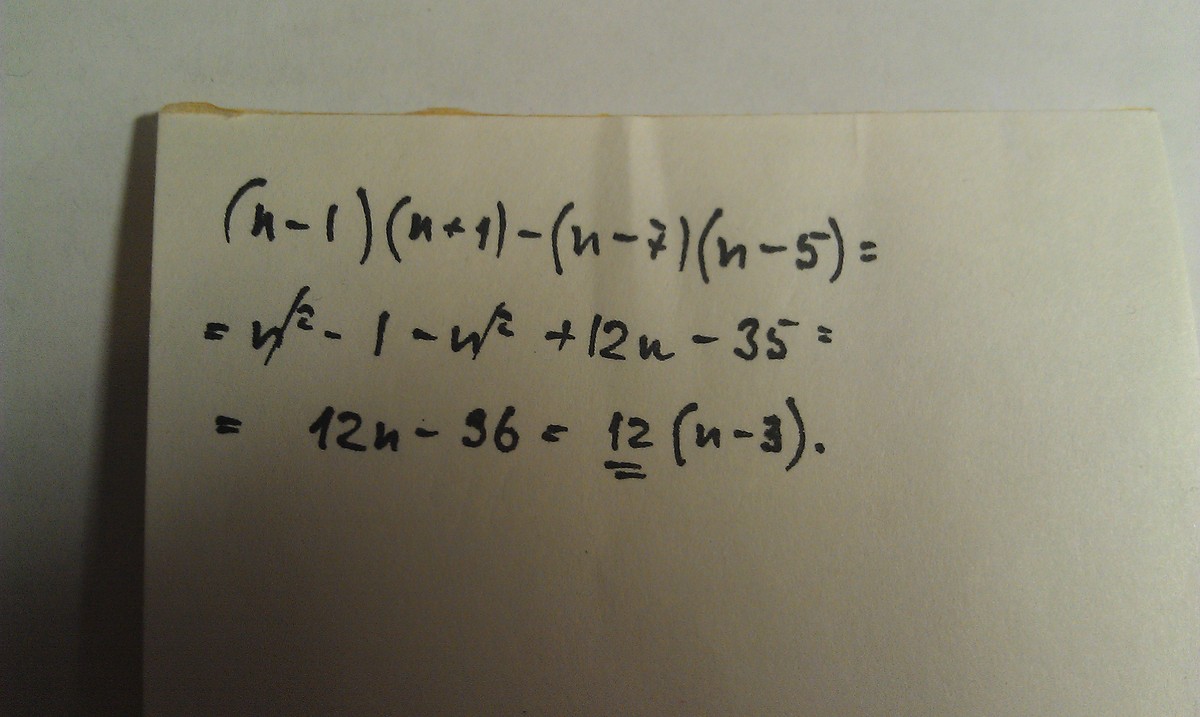 (n-1)(n+1)-(n-7)(n-5)=
= n² - 1 - n² + 12n - 35 =
= 12n - 36 = 12 (n-3).